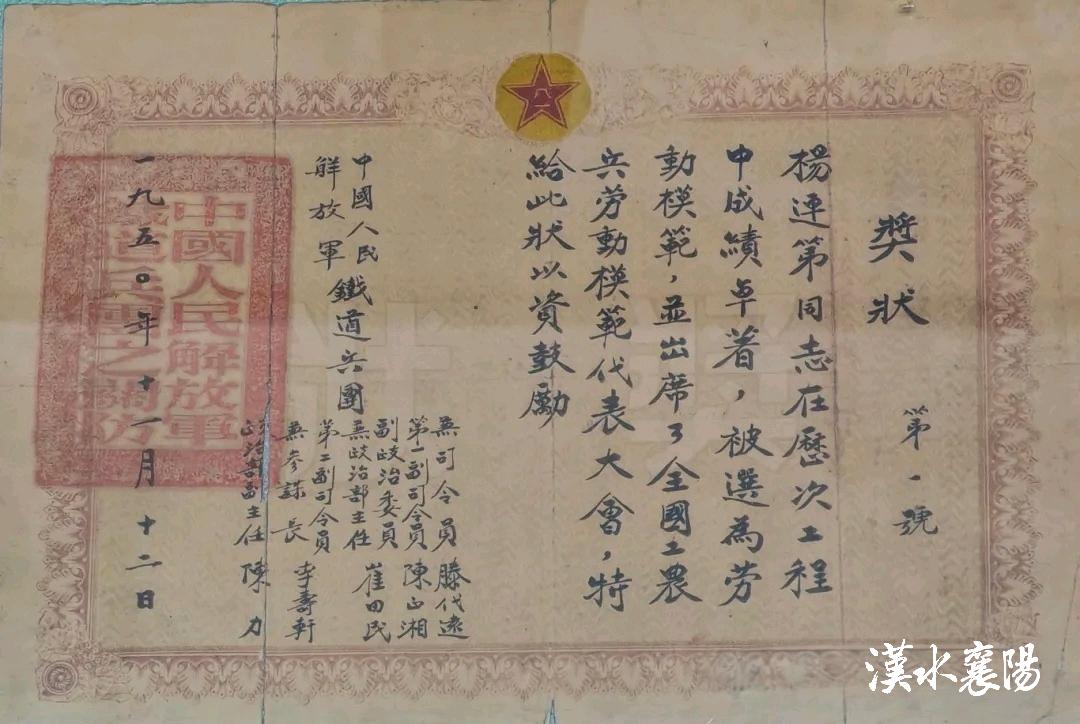 獎狀
第1號
楊連第同志在歷次工程
中成績卓著，被選為劳
動模範，並出席了全國工農
兵劳動模範代表大會，特
給此狀以資鼓勵
中國人民
解放軍鐵道兵團
兼司令員 滕代遠
第一副司令員 陳正湘
副政治委員
兼政治部主任 崔田民
第二副司令員
兼參謀長 李壽軒
政治部副主任 陳力
一九五〇年十一月十二日
中國人民解放軍
鐵道兵團之關防
八一
漢水襄陽